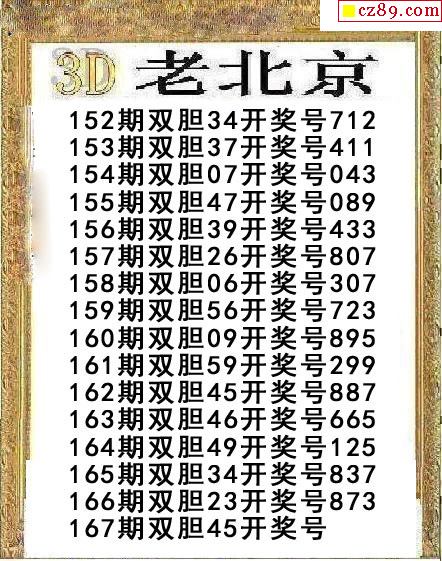 cz89.com
3D 老北京
152期双胆34开奖号712
153期双胆37开奖号411
154期双胆07开奖号043
155期双胆47开奖号089
156期双胆39开奖号433
157期双胆26开奖号807
158期双胆06开奖号307
159期双胆56开奖号723
160期双胆09开奖号895
161期双胆59开奖号299
162期双胆45开奖号887
163期双胆46开奖号665
164期双胆49开奖号125
165期双胆34开奖号837
166期双胆23开奖号873
167期双胆45开奖号